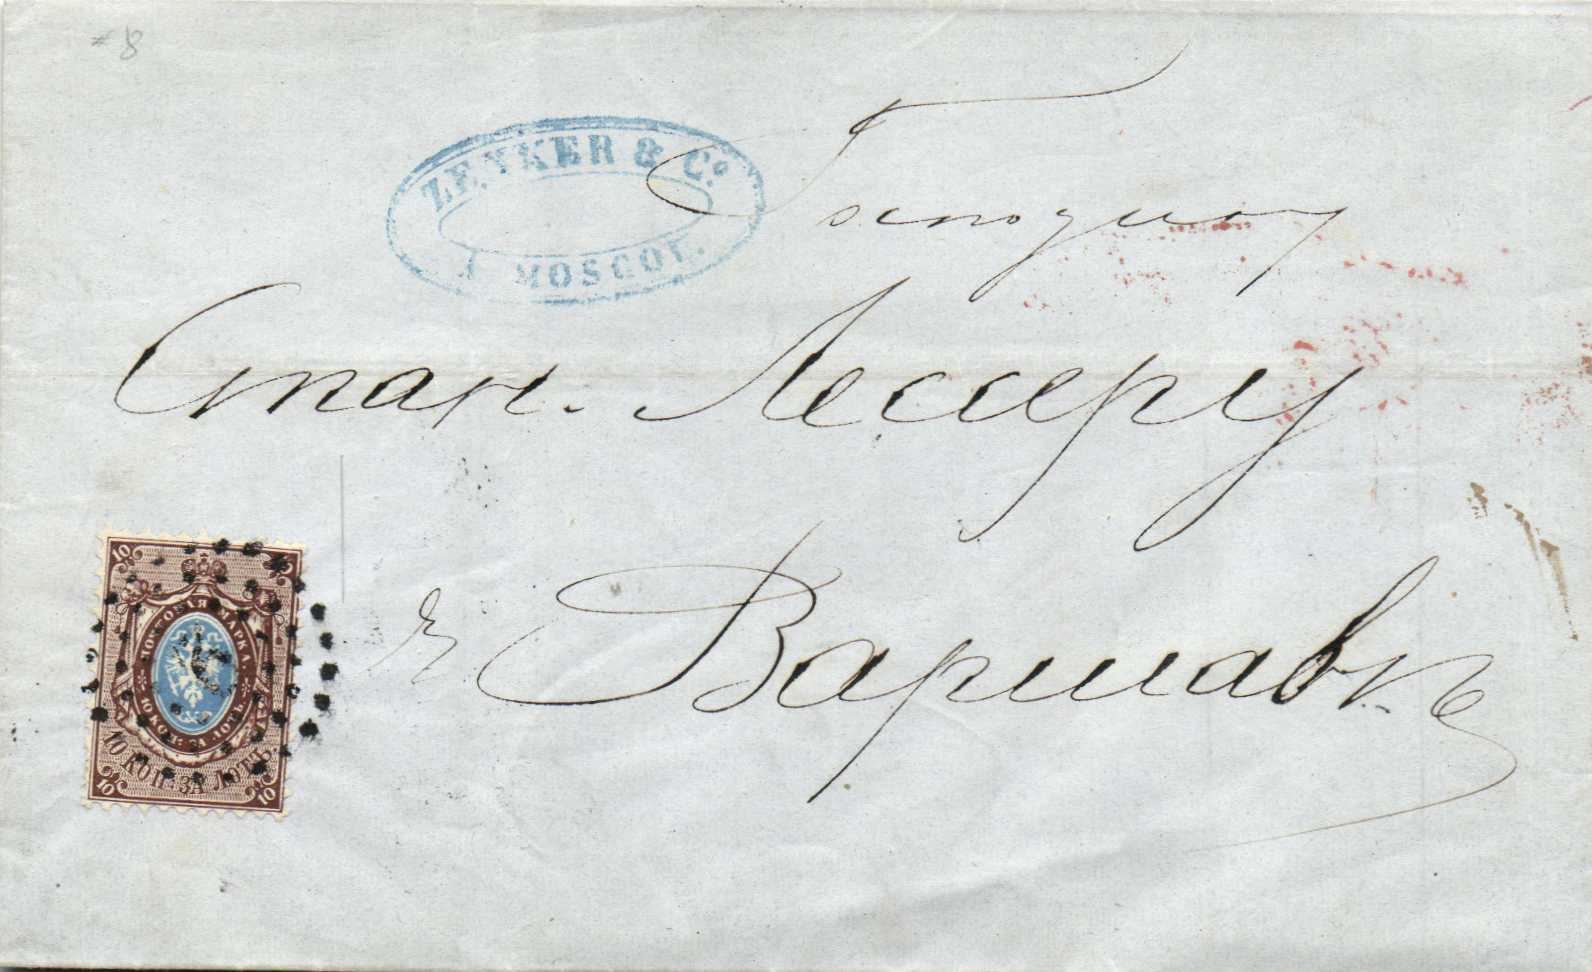 #8
ZENKER & Cº
A MOSCOU.
Господину
Стан. Лессеру
Варшавѣ
10 10
ПОЧТОВАЯ МАРКА.
10 КОП. ЗА ЛОТЪ.
10 КОП. ЗА ЛОТЪ.
10 10